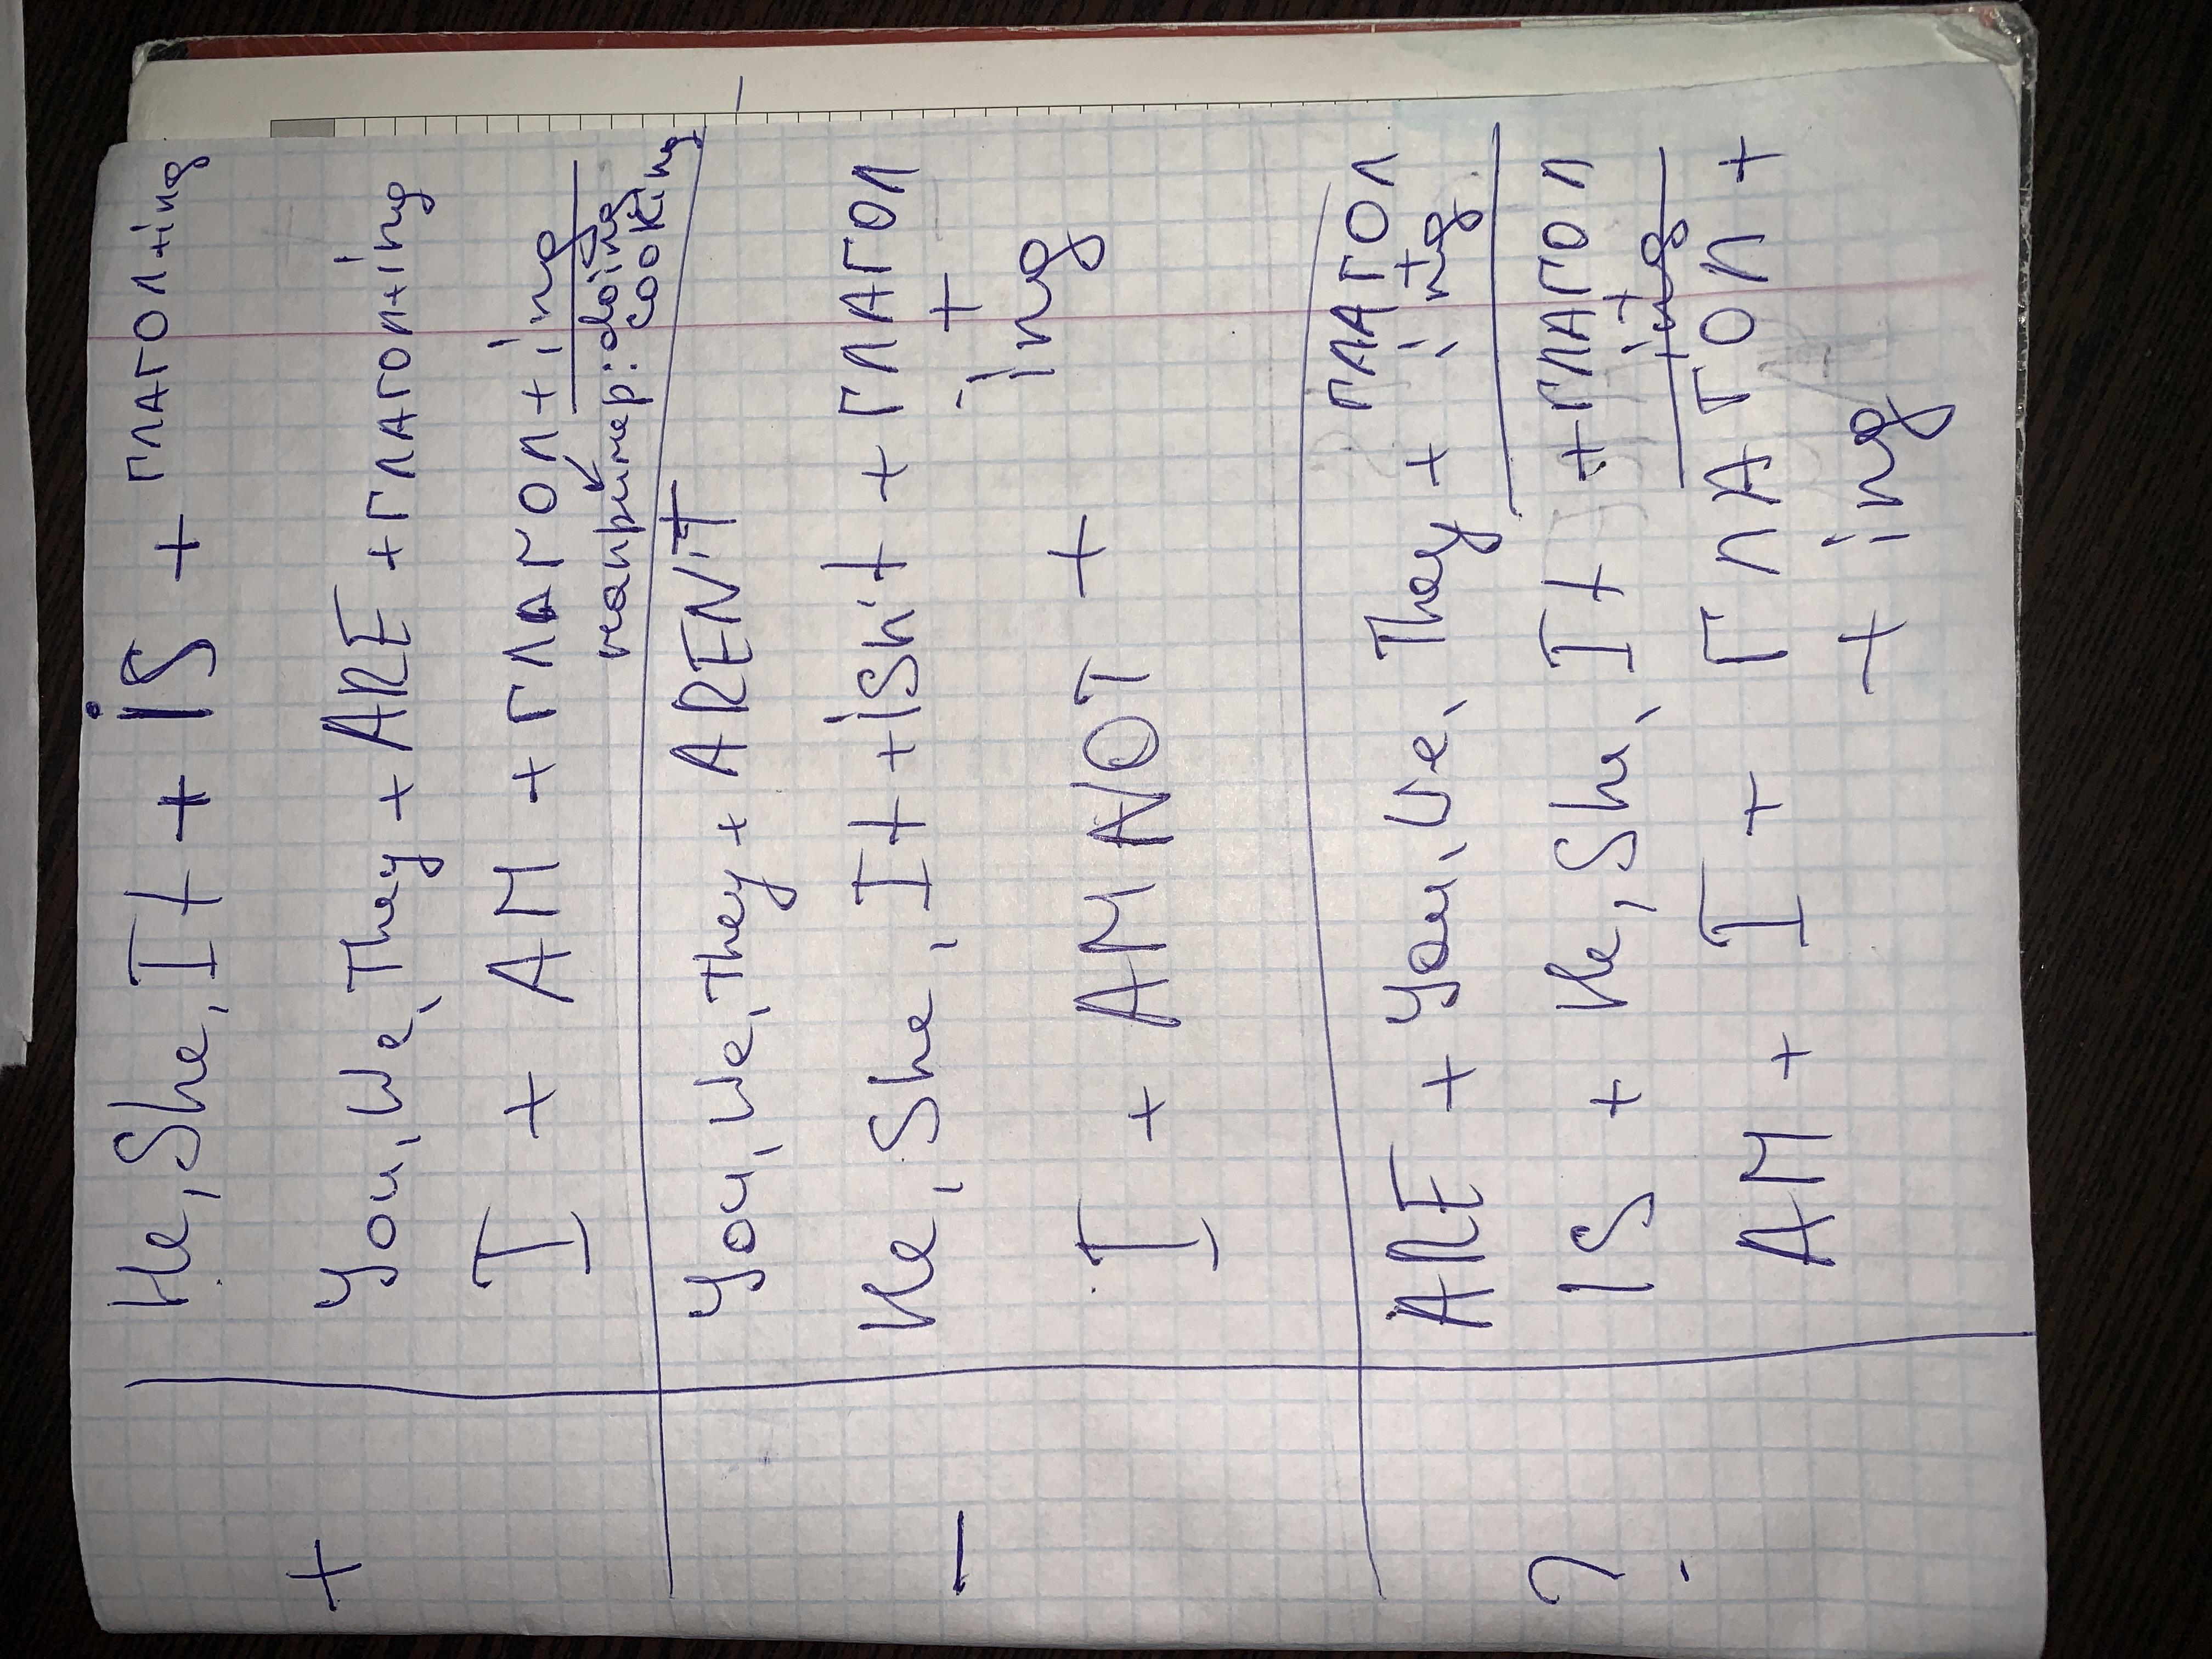 +
He, She, It + is + ГЛАГОЛ+ing
You, We, They + ARE +ГЛАГОЛ+ing
I + AM + ГЛАГОЛ+ing
например: doing
cooking
-
You, We, They + AREN't
He, She, It +isn't + ГЛАГОЛ
+
ing
I + AM NOT +
?
ARE + You, We, They + ГЛАГОЛ
+
ing
IS + He, She, It +ГЛАГОЛ
+
ing
AM + I + ГЛАГОЛ +
+ ing